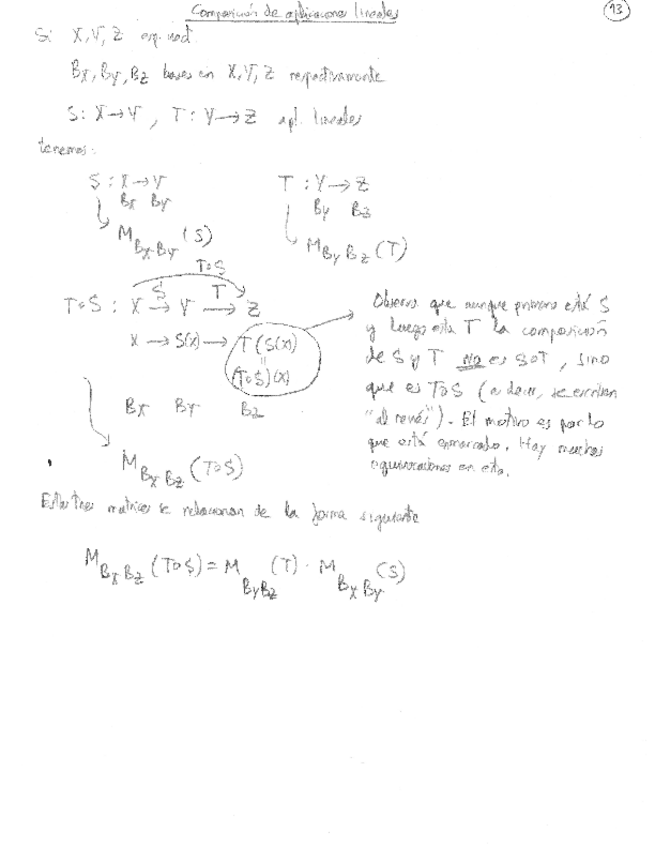 Composición de aplicaciones lineales
13
Si X, Y, Z esp. vect.
Bx, By, Bz bases en X, Y, Z respectivamente
S: X → Y , T: Y → Z apl. lineales
tenemos:
S : X → Y T : Y → Z
Bx By By Bz
M BxBy (S) M ByBz (T)
T∘S
S T
T∘S : X → Y → Z
x → S(x) → T(S(x))
=
(T∘S)(x)
Bx By Bz
M BxBz (T∘S)
Observa que aunque primero está S
y luego está T la composición
de S y T NO es S∘T , sino
que es T∘S (es decir, se escriben
"al revés"). El motivo es por lo
que está enmarcado. Hay muchas
equivocaciones en esto.
Estas tres matrices se relacionan de la forma siguiente
M BxBz (T∘S) = M ByBz (T) · M BxBy (S)